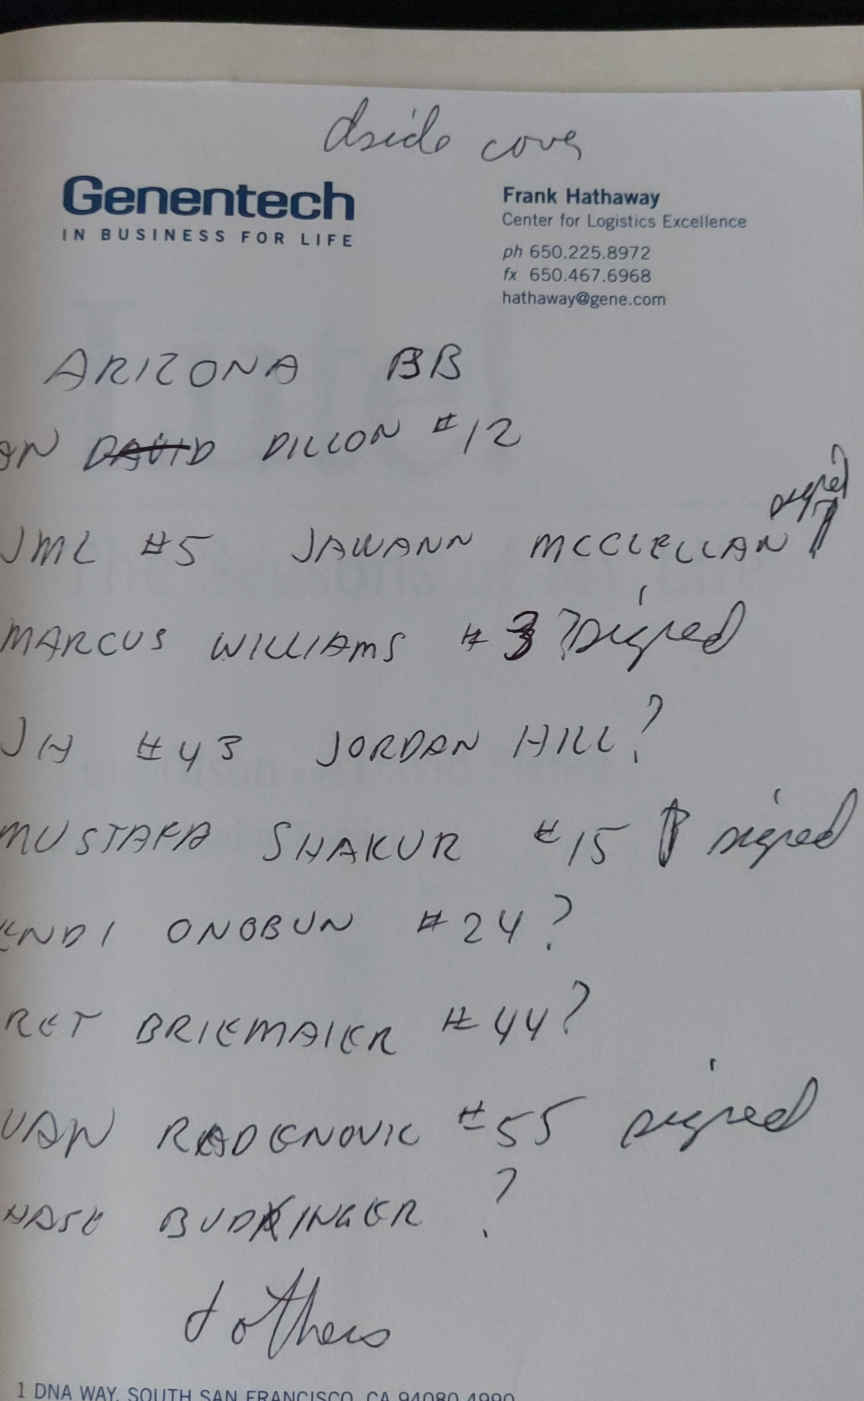 dside cover
Genentech
IN BUSINESS FOR LIFE
Frank Hathaway
Center for Logistics Excellence
ph 650.225.8972
fx 650.467.6968
hathaway@gene.com
ARIZONA BB
DAVID DILLON #12
signed
JML #5 JAWANN MCCLELLAN
MARCUS WILLIAMS #3? signed
JH #43 JORDAN HILL?
MUSTAFA SHAKUR #15 signed
ENDI ONOBUN #24?
RET BRIEMAIER #44?
VAN RADENOVIC #55 signed
HASE BUDINGER ?
& others
1 DNA WAY, SOUTH SAN FRANCISCO, CA 94080 4990